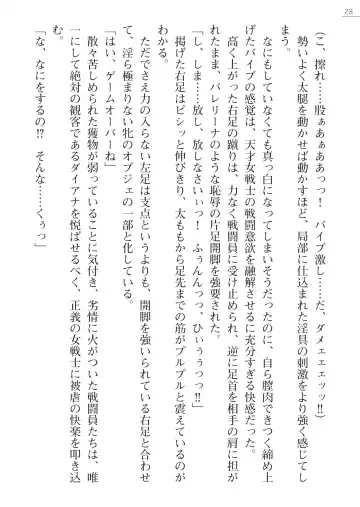 28
(こ、擦れ……股ぁぁああっっ！　バイブ激し……だ、ダメエエエッッ‼)
　勢いよく太腿を動かせば動かすほど、局部に仕込まれた淫具の刺激をより強く感じてし
まう。
　なにもしていなくても真っ白になってしまいそうだったのに、自ら膣肉できつく締め上
げたバイブの快感は、天才女戦士の戦闘意欲を融解させるに充分すぎる快感だった。
　高く上がった右足の蹴りは、力なく戦闘員に受け止められ、逆に足首を相手の肩に担が
れたまま、バレリーナのような恥辱の片足開脚を強要された。
「し、しま……放し、放しなさいぃっ！　ふぅんんっっ、ひぃぅぅっっ‼」
　掲げた右足はピシッと伸びきり、太ももから足先までの筋がプルプルと震えているのが
わかる。
　ただでさえ力の入らない左足は支点というよりも、開脚を強いられている右足と合わせ
て、淫ら極まりない牝のオブジェの一部と化している。
「はい、ゲームオーバーね」
　散々苦しめられた獲物が弱っていることに気付き、劣情に火がついた戦闘員たちは、唯
一にして絶対の観客であるダイアナを悦ばせるべく、正義の女戦士に被虐の快楽を叩き込
む。
「な、なにをするの⁉　そんな……くぅっ」